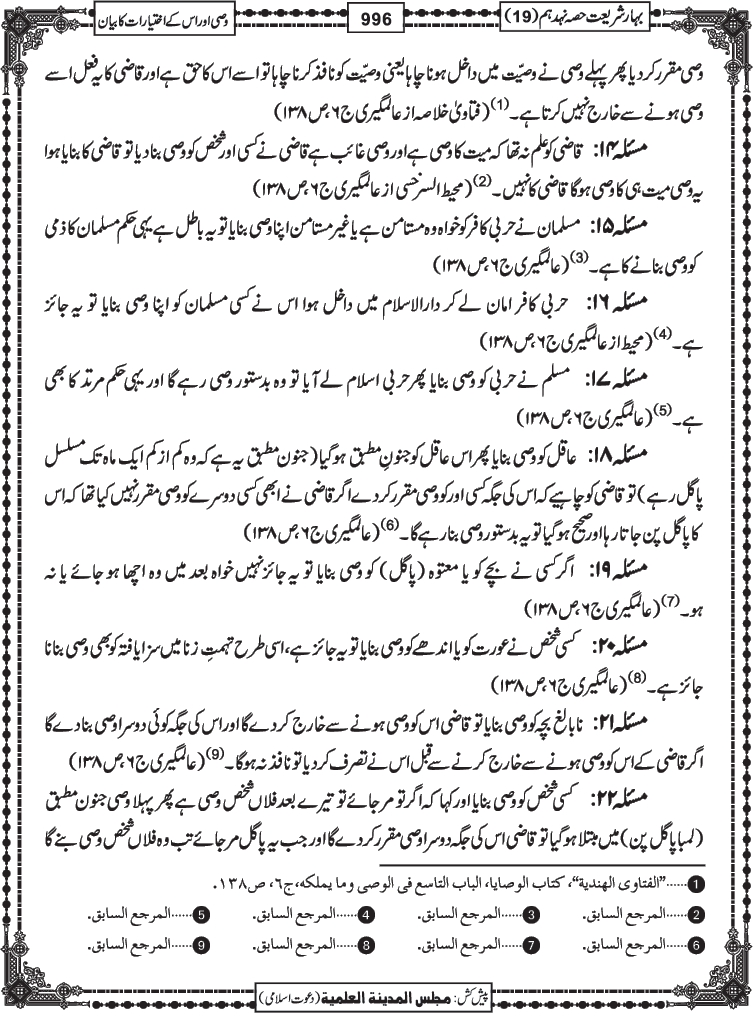 بہارشریعت حصہ نہدہم (19)
996
وصی اور اس کے اختیارات کا بیان
وصی مقرر کر دیا پھر پہلے وصی نے وصیّت میں داخل ہونا چاہا یعنی وصیّت کو نافذ کرنا چاہا تو اسے اس کا حق ہے اور قاضی کا یہ فعل اسے
وصی ہونے سے خارج نہیں کرتا ہے۔(1) (فتاویٰ خلاصہ از عالمگیری ج۶، ص۱۳۸)
مسئلہ ۱۴: قاضی کو علم نہ تھا کہ میت کا وصی ہے اور وصی غائب ہے قاضی نے کسی اور شخص کو وصی بنا دیا تو قاضی کا بنایا ہوا
یہ وصی میت ہی کا وصی ہوگا قاضی کا نہیں۔(2) (محیط السرخسی از عالمگیری ج۶، ص۱۳۸)
مسئلہ ۱۵: مسلمان نے حربی کافر کو خواہ وہ مستامن ہے یا غیر مستامن اپنا وصی بنایا تو یہ باطل ہے یہی حکم مسلمان کا ذمی
کو وصی بنانے کا ہے۔(3) (عالمگیری ج۶، ص۱۳۸)
مسئلہ ۱۶: حربی کافر امان لے کر دارالاسلام میں داخل ہوا اس نے کسی مسلمان کو اپنا وصی بنایا تو یہ جائز
ہے۔(4) (محیط از عالمگیری ج۶، ص۱۳۸)
مسئلہ ۱۷: مسلم نے حربی کو وصی بنایا پھر حربی اسلام لے آیا تو وہ بدستور وصی رہے گا اور یہی حکم مرتد کا بھی
ہے۔(5) (عالمگیری ج۶، ص۱۳۸)
مسئلہ ۱۸: عاقل کو وصی بنایا پھر اس عاقل کو جنونِ مطبق ہوگیا (جنون مطبق یہ ہے کہ وہ کم از کم ایک ماہ تک مسلسل
پاگل رہے) تو قاضی کو چاہیے کہ اس کی جگہ کسی اور کو وصی مقرر کر دے اگر قاضی نے ابھی کسی دوسرے کو وصی مقرر نہیں کیا تھا کہ اس
کا پاگل پن جاتا رہا اور صحیح ہوگیا تو یہ بدستور وصی بنا رہے گا۔(6) (عالمگیری ج۶، ص۱۳۸)
مسئلہ ۱۹: اگر کسی نے بچے کو یا معتوہ (پاگل) کو وصی بنایا تو یہ جائز نہیں خواہ بعد میں وہ اچھا ہو جائے یا نہ
ہو۔(7) (عالمگیری ج۶، ص۱۳۸)
مسئلہ ۲۰: کسی شخص نے عورت کو یا اندھے کو وصی بنایا تو یہ جائز ہے، اسی طرح تہمتِ زنا میں سزا یافتہ کو بھی وصی بنانا
جائز ہے۔(8) (عالمگیری ج۶، ص۱۳۸)
مسئلہ ۲۱: نابالغ بچہ کو وصی بنایا تو قاضی اس کو وصی ہونے سے خارج کر دے گا اور اس کی جگہ کوئی دوسرا وصی بنا دے گا
اگر قاضی کے اس کو وصی ہونے سے خارج کرنے سے قبل اس نے تصرف کر دیا تو نافذ نہ ہوگا۔(9) (عالمگیری ج۶، ص۱۳۸)
مسئلہ ۲۲: کسی شخص کو وصی بنایا اور کہا کہ اگر تو مر جائے تو تیرے بعد فلاں شخص وصی ہے پھر پہلا وصی جنون مطبق
(لمبا پاگل پن) میں مبتلا ہوگیا تو قاضی اس کی جگہ دوسرا وصی مقرر کر دے گا اور جب یہ پاگل مر جائے تب وہ فلاں شخص وصی بنے گا
1 ......"الفتاوی الهندیة"، کتاب الوصایا، الباب التاسع فی الوصی وما یملکه، ج٦، ص١٣٨.
2 ......المرجع السابق. 3 ......المرجع السابق. 4 ......المرجع السابق. 5 ......المرجع السابق.
6 ......المرجع السابق. 7 ......المرجع السابق. 8 ......المرجع السابق. 9 ......المرجع السابق.
پیش کش: مجلس المدینة العلمیة (دعوت اسلامی)